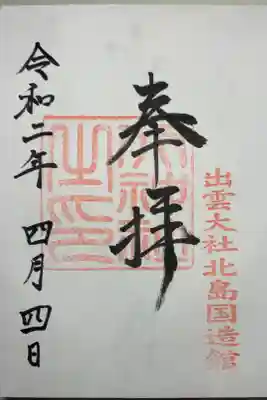 出雲大社北島国造館
奉拝
令和二年 四月四日